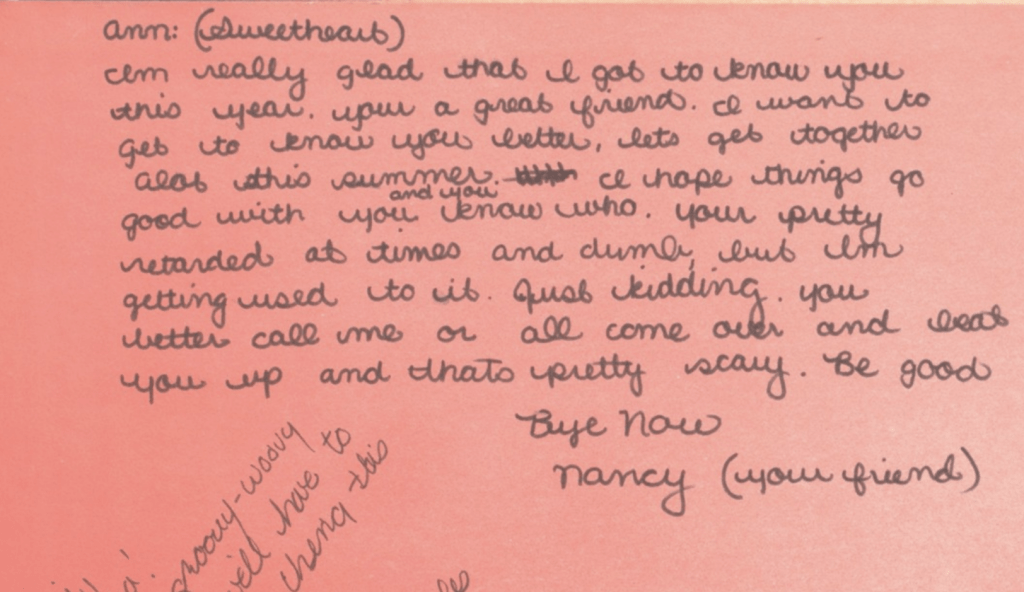 ann: (Sweetheart)
Im really glad that I got to know you
this year. your a great friend. I want to
get to know you better, lets get together
alot this summer. I hope things go
and you
good with you know who. your pretty
retarded at times and dumb, but Im
getting used to it. Just kidding. you
better call me or all come over and beat
you up and thats pretty scary. Be good
Bye Now
nancy (your friend)
groovy-woovy
will have to
this